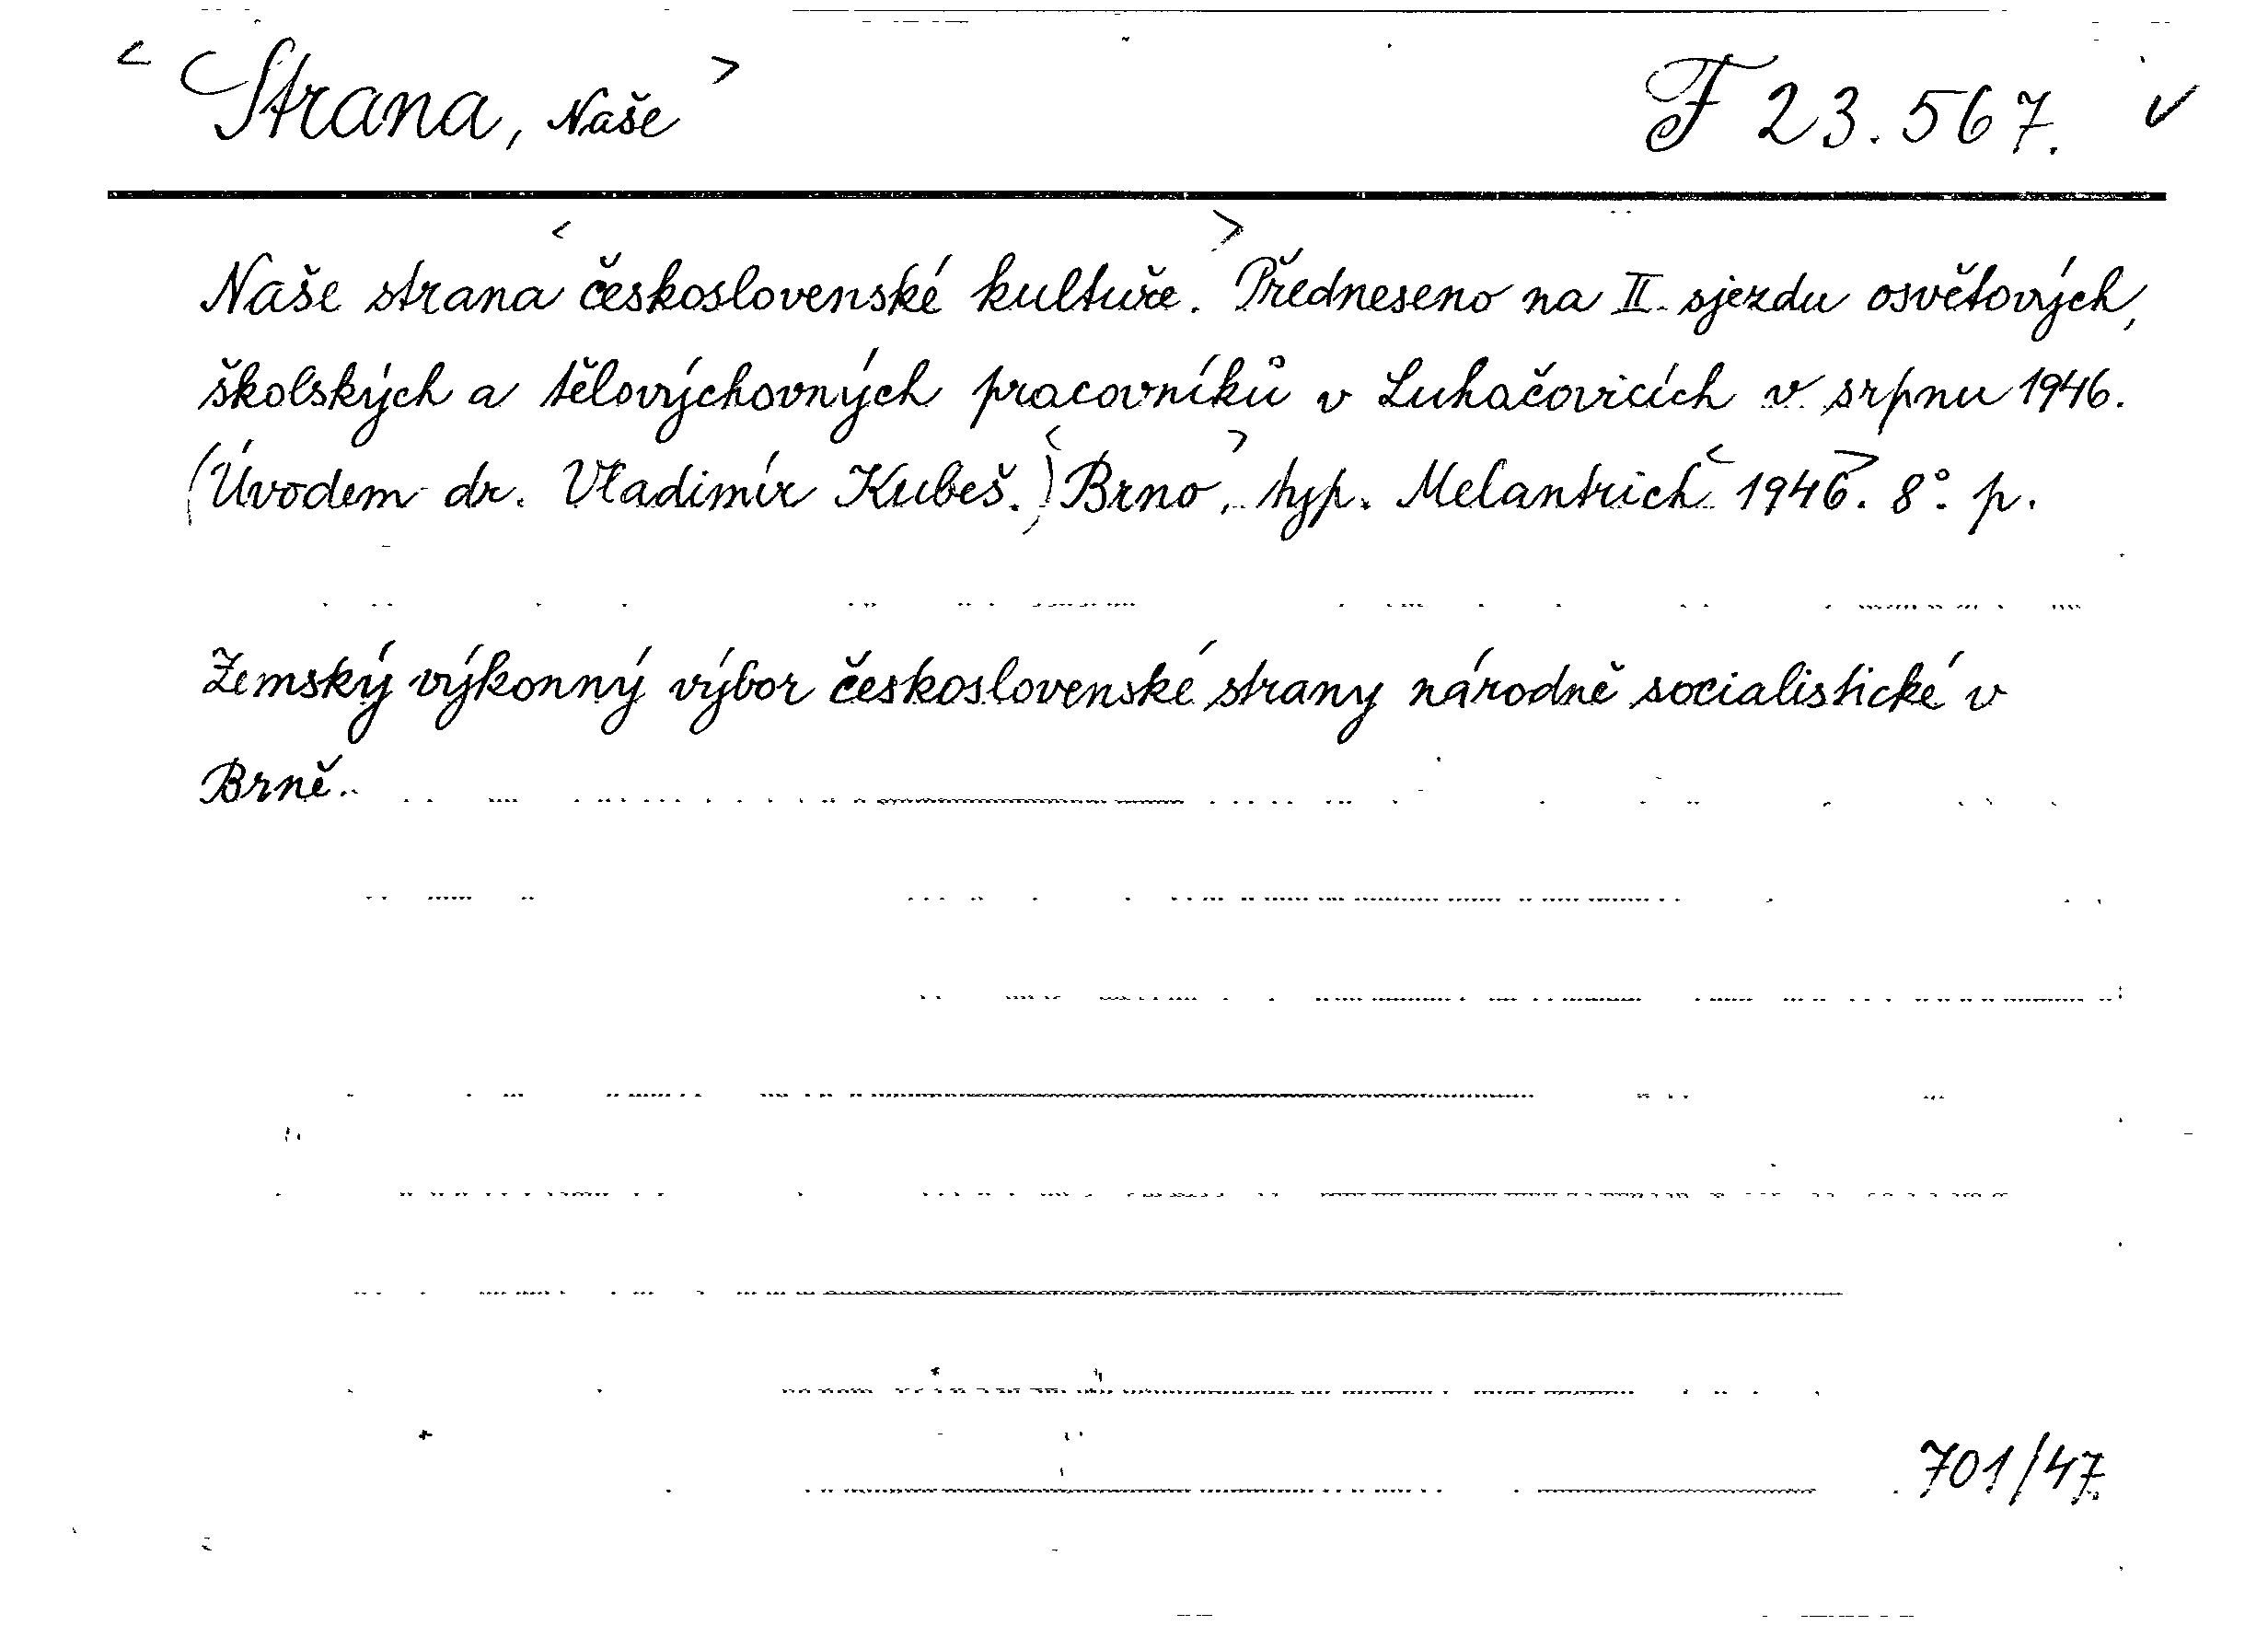 < Strana, Naše > F 23.567. ✓
Naše strana < československé kultuře. > Předneseno na II. sjezdu osvětových,
školských a tělovýchovných pracovníků v Luhačovicích v srpnu 1946.
(Úvodem dr. Vladimír Kubeš.) < Brno >, typ. Melantrich < 1946 >. 8° p.
Zemský výkonný výbor československé strany národně socialistické v
Brně.
701/47.